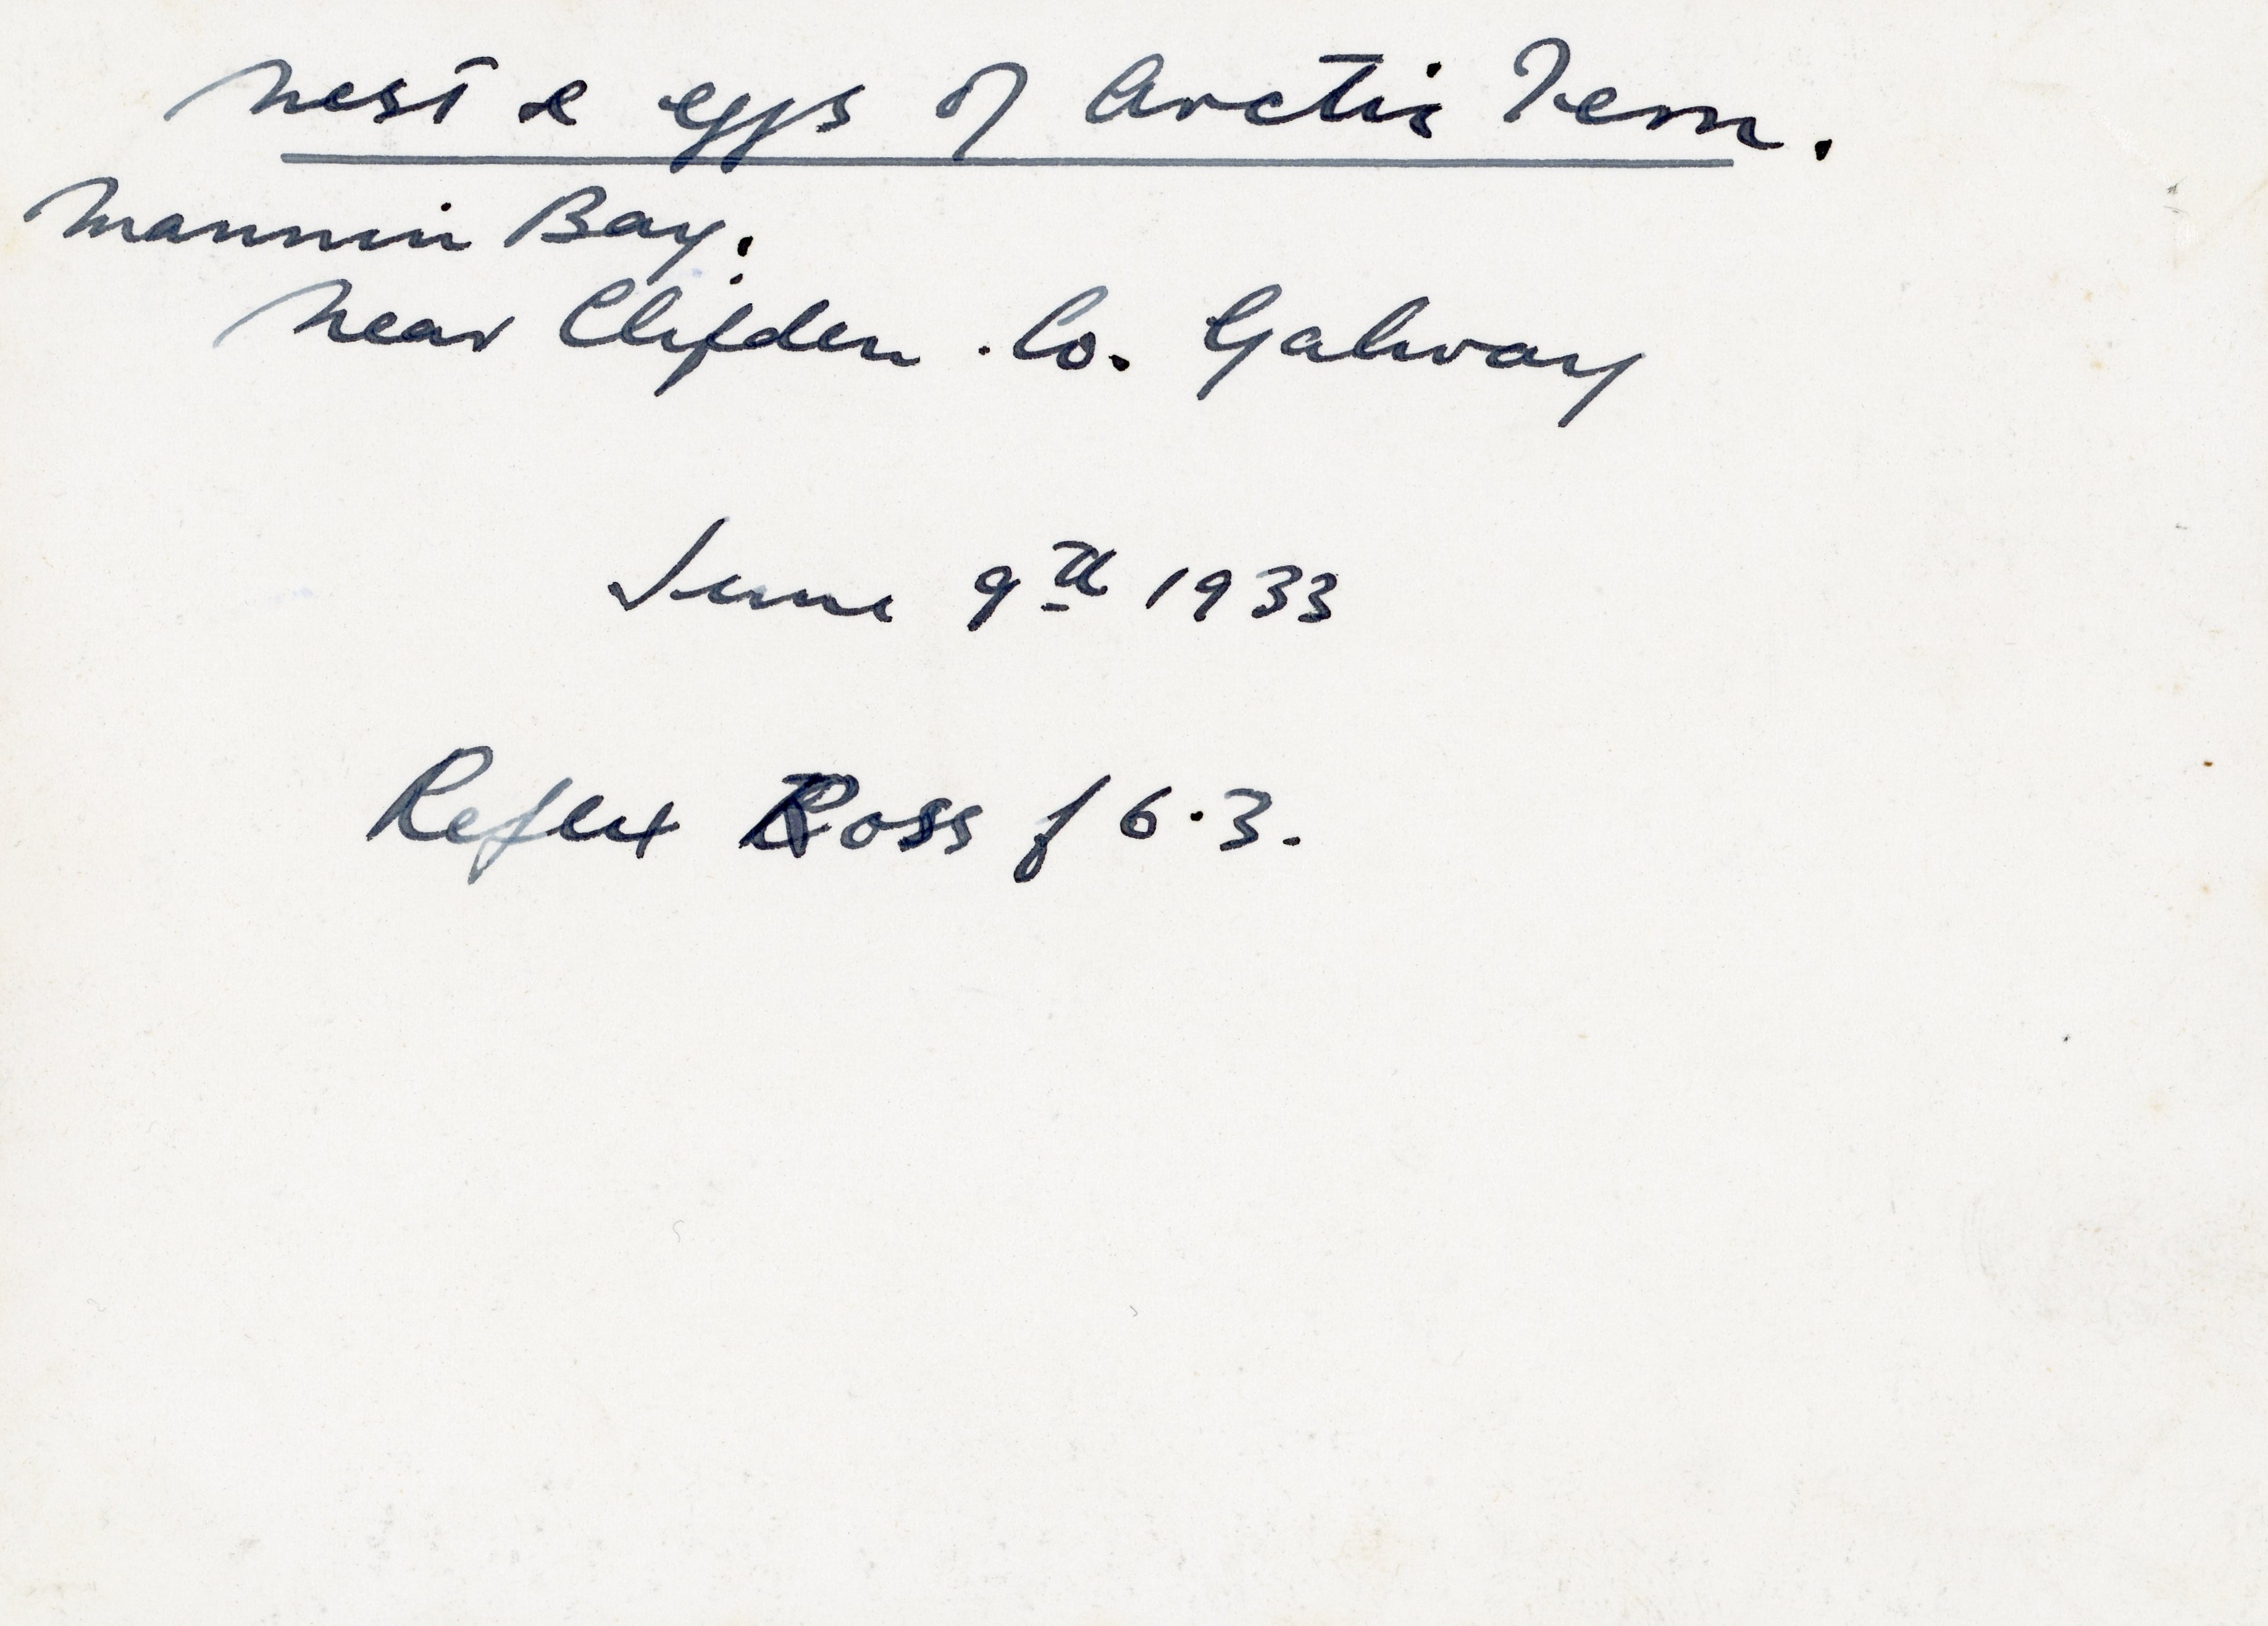 Nest & eggs of Arctic Tern.
Mannin Bay.
Near Clifden . Co. Galway
June 9th 1933
Reflex Ross f 6.3.